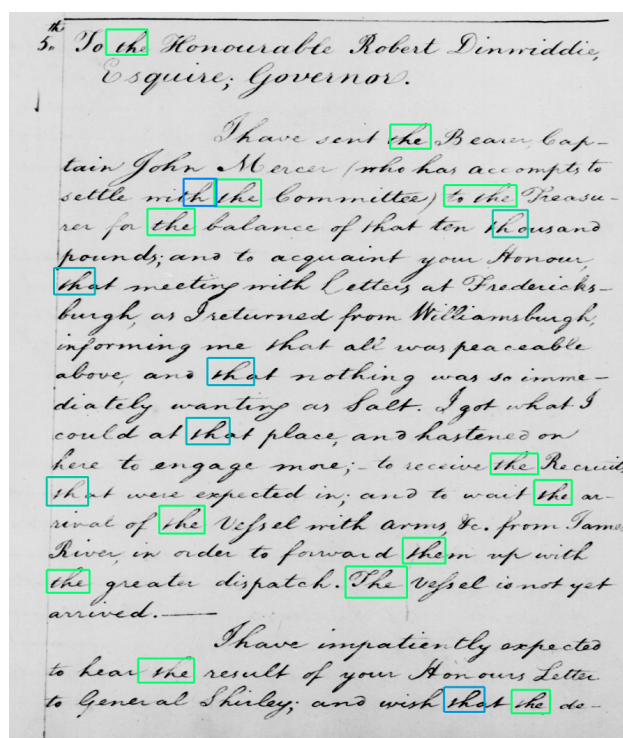 5th. To the Honourable Robert Dinwiddie,
Esquire; Governor.
I have sent the Bearer, Cap-
tain John Mercer (who has accompts to
settle with the Committee) to the Treasu-
rer for the balance of that ten thousand
pounds; and to acquaint your Honour,
that meeting with Letters at Fredericks-
burgh, as I returned from Williamsburgh,
informing me that all was peaceable
above, and that nothing was so imme-
diately wanting as Salt. I got what I
could at that place, and hastened on
here to engage more; to receive the Recruits
that were expected in; and to wait the ar-
rival of the Vessel with arms, &c. from James
River, in order to forward them up with
the greater dispatch. The Vessel is not yet
arrived.—
I have impatiently expected
to hear the result of your Honours Letter
to General Shirley; and wish that the de-